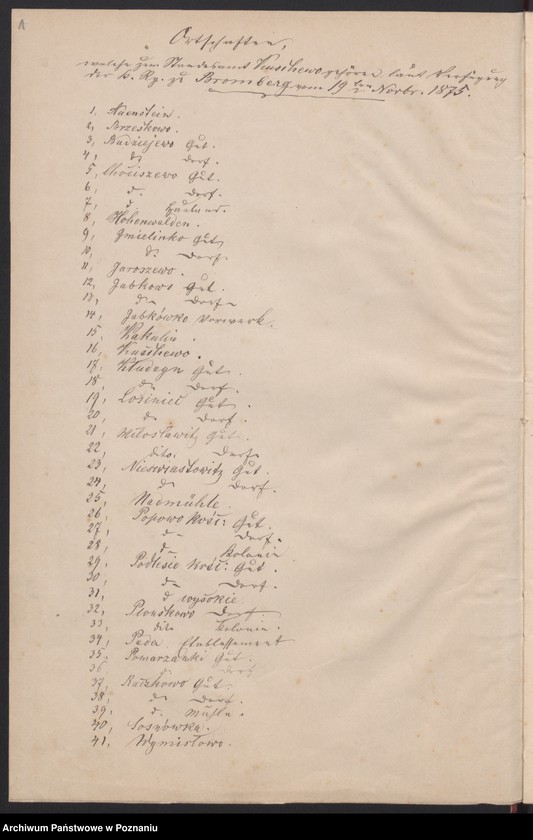 A
Ortschaften,
welche zum Standesamt Kuschewo gehören laut Verfügung
der k. Rg. zu Bromberg vom 19ten Novbr. 1875.
1, Adenstein.
2, Brzeskowo.
3, Budziejewo Gut.
4, do Dorf.
5, Chociszewo Gut.
6, do Dorf.
7, d Hauland.
8, Hohenwalden.
9, Gmielinko Gut
10, do Dorf.
11, Jaroszewo.
12, Jabkowo Gut.
13, do Dorf
14, Jabkówko Vorwerk.
15, Kakulin.
16,
17, Gut.
18, do Dorf.
19, Losiniec Gut.
20, do Dorf.
21, Miłosławitz Gut.
22, dito. Dorf
23, Nieswiastowitz Gut.
24, do Dorf.
25, Nadmühle.
26, Popowo Kośc: Gut.
27, do Dorf.
28, do Kolonie
29, Podlisie Kośc: Gut.
30, do Dorf.
31, d wysokie
32, Dorf.
33, dito Kolonie.
34, Etablissement
35, Pomarzanki Gut.
36 do Dorf
37, Raczkowo Gut.
38, do Dorf.
39, d. Mühle.
40, Sosnowska.
41, Wymisłowo.
Archiwum Państwowe w Poznaniu